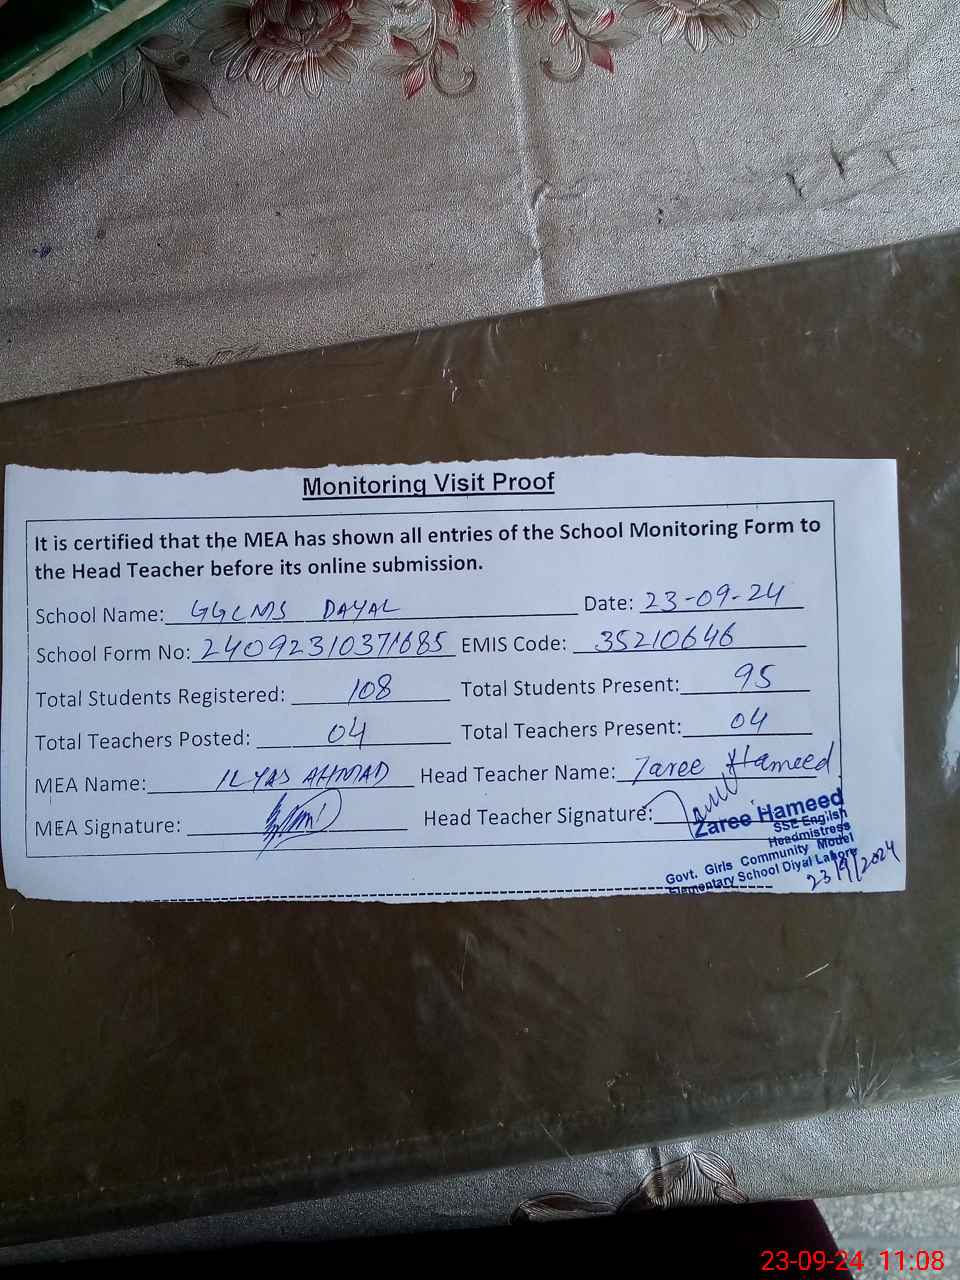 Monitoring Visit Proof
It is certified that the MEA has shown all entries of the School Monitoring Form to
the Head Teacher before its online submission.
School Name: GGCMS DAYAL Date: 23-09-24
School Form No: 24092310371685 EMIS Code: 35210646
Total Students Registered: 108 Total Students Present: 95
Total Teachers Posted: 04 Total Teachers Present: 04
MEA Name: ILYAS AHMAD Head Teacher Name: Zaree Hameed
MEA Signature: Head Teacher Signature:
Zaree Hameed
SSE English
Headmistress
Govt. Girls Community Model
Elementary School Diyal Lahore
23/9/2024
23-09-24 11:08